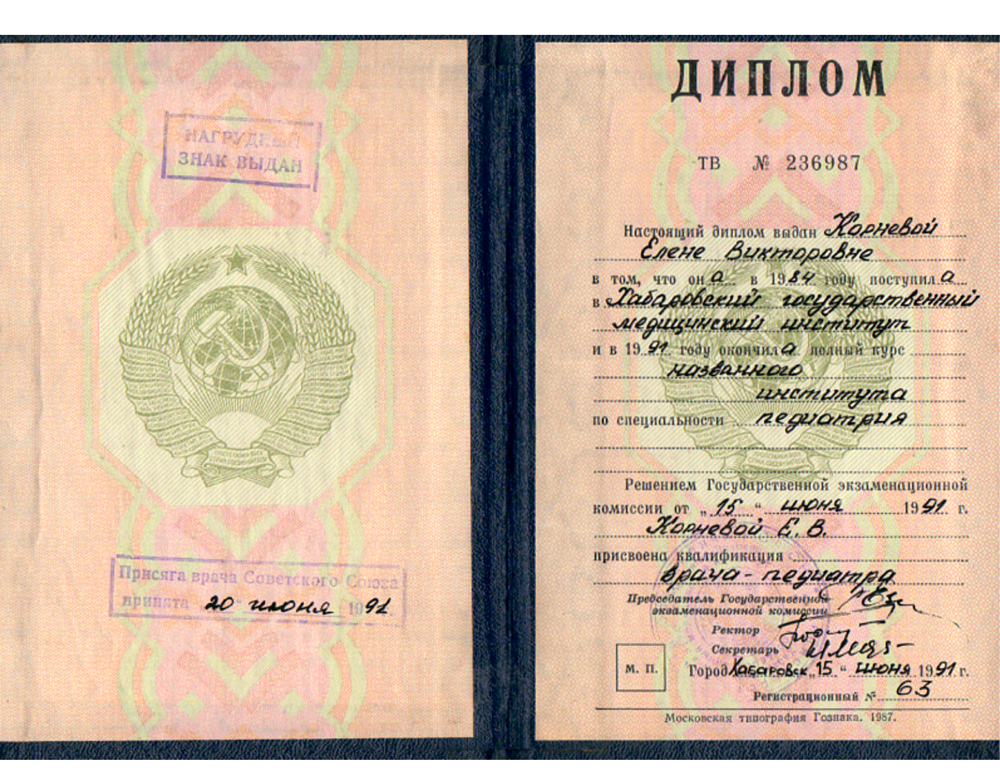 НАГРУДНЫЙ
ЗНАК ВЫДАН
Присяга врача Советского Союза
принята „20“ июня 1991 г.
ДИПЛОМ
ТВ № 236987
Настоящий диплом выдан Корневой
Елене Викторовне
в том, что она в 1984 году поступила
в Хабаровский государственный
медицинский институт
и в 1991 году окончила полный курс
названного
института
по специальности педиатрия
Решением Государственной экзаменационной
комиссии от „15“ июня 1991 г.
Корневой Е. В.
присвоена квалификация
врача-педиатра
Председатель Государственной
экзаменационной комиссии
Ректор
Секретарь
М. П.
Город Хабаровск „15“ июня 1991 г.
Регистрационный № 63
Московская типография Гознака. 1987.